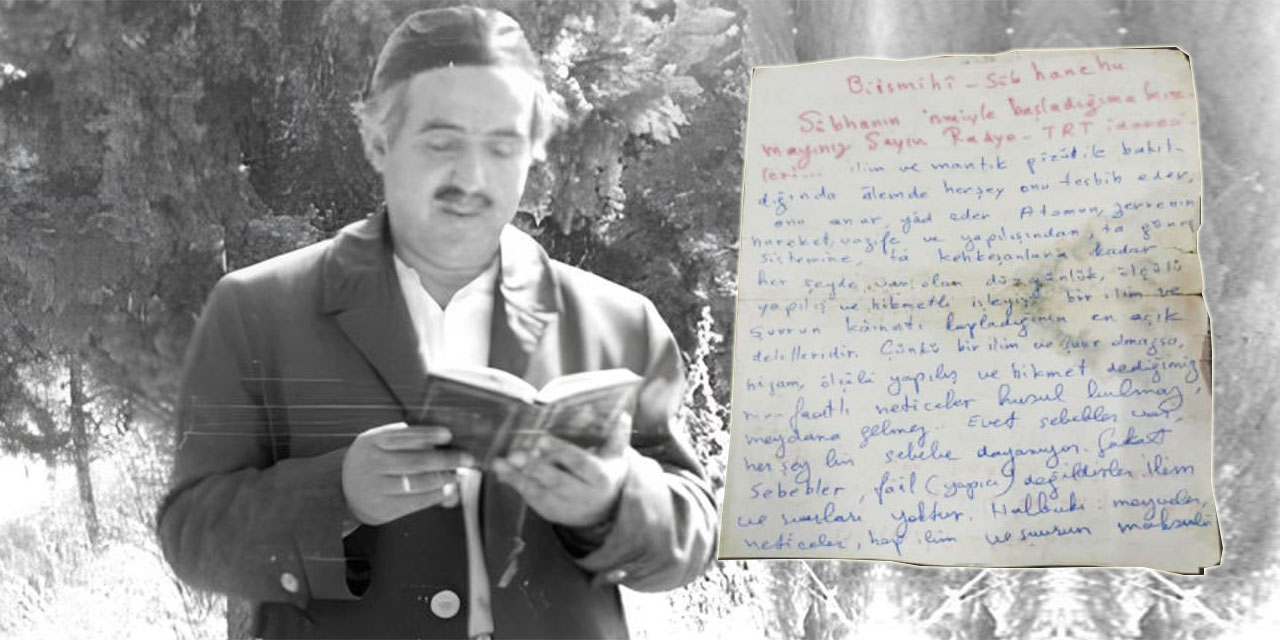 Biismihî - Sübhanehu
Sübhanın ismiyle başladığıma kız-
mayınız Sayın Radyo - TRT idareci-
leri.... ilim ve mantık gözü ile bakıl-
dığında âlemde herşey onu tesbih eder,
onu anar, yâd eder. Atomun, zerrenin
hareket, vazife ve yapılışından, ta güneş
sistemine, tâ kehkeşanlara kadar
her şeyde var olan düzgünlük, ölçülü
yapılış ve hikmetli işleyiş bir ilim ve
Şuurun kâinatı kapladığının en açık
delilleridir. Çünkü bir ilim ve şuur olmazsa,
nizam, ölçülü yapılış ve hikmet dediğimiz
menfaatlı neticeler husul bulmaz,
meydana gelmez. Evet sebebler var,
her şey bir sebebe dayanıyor. Fakat
Sebebler, fâil (yapıcı) değildirler. İlim
ve şuurları yoktur. Halbuki meyveler,
neticeler, hep ilim ve şuurun mahsulü